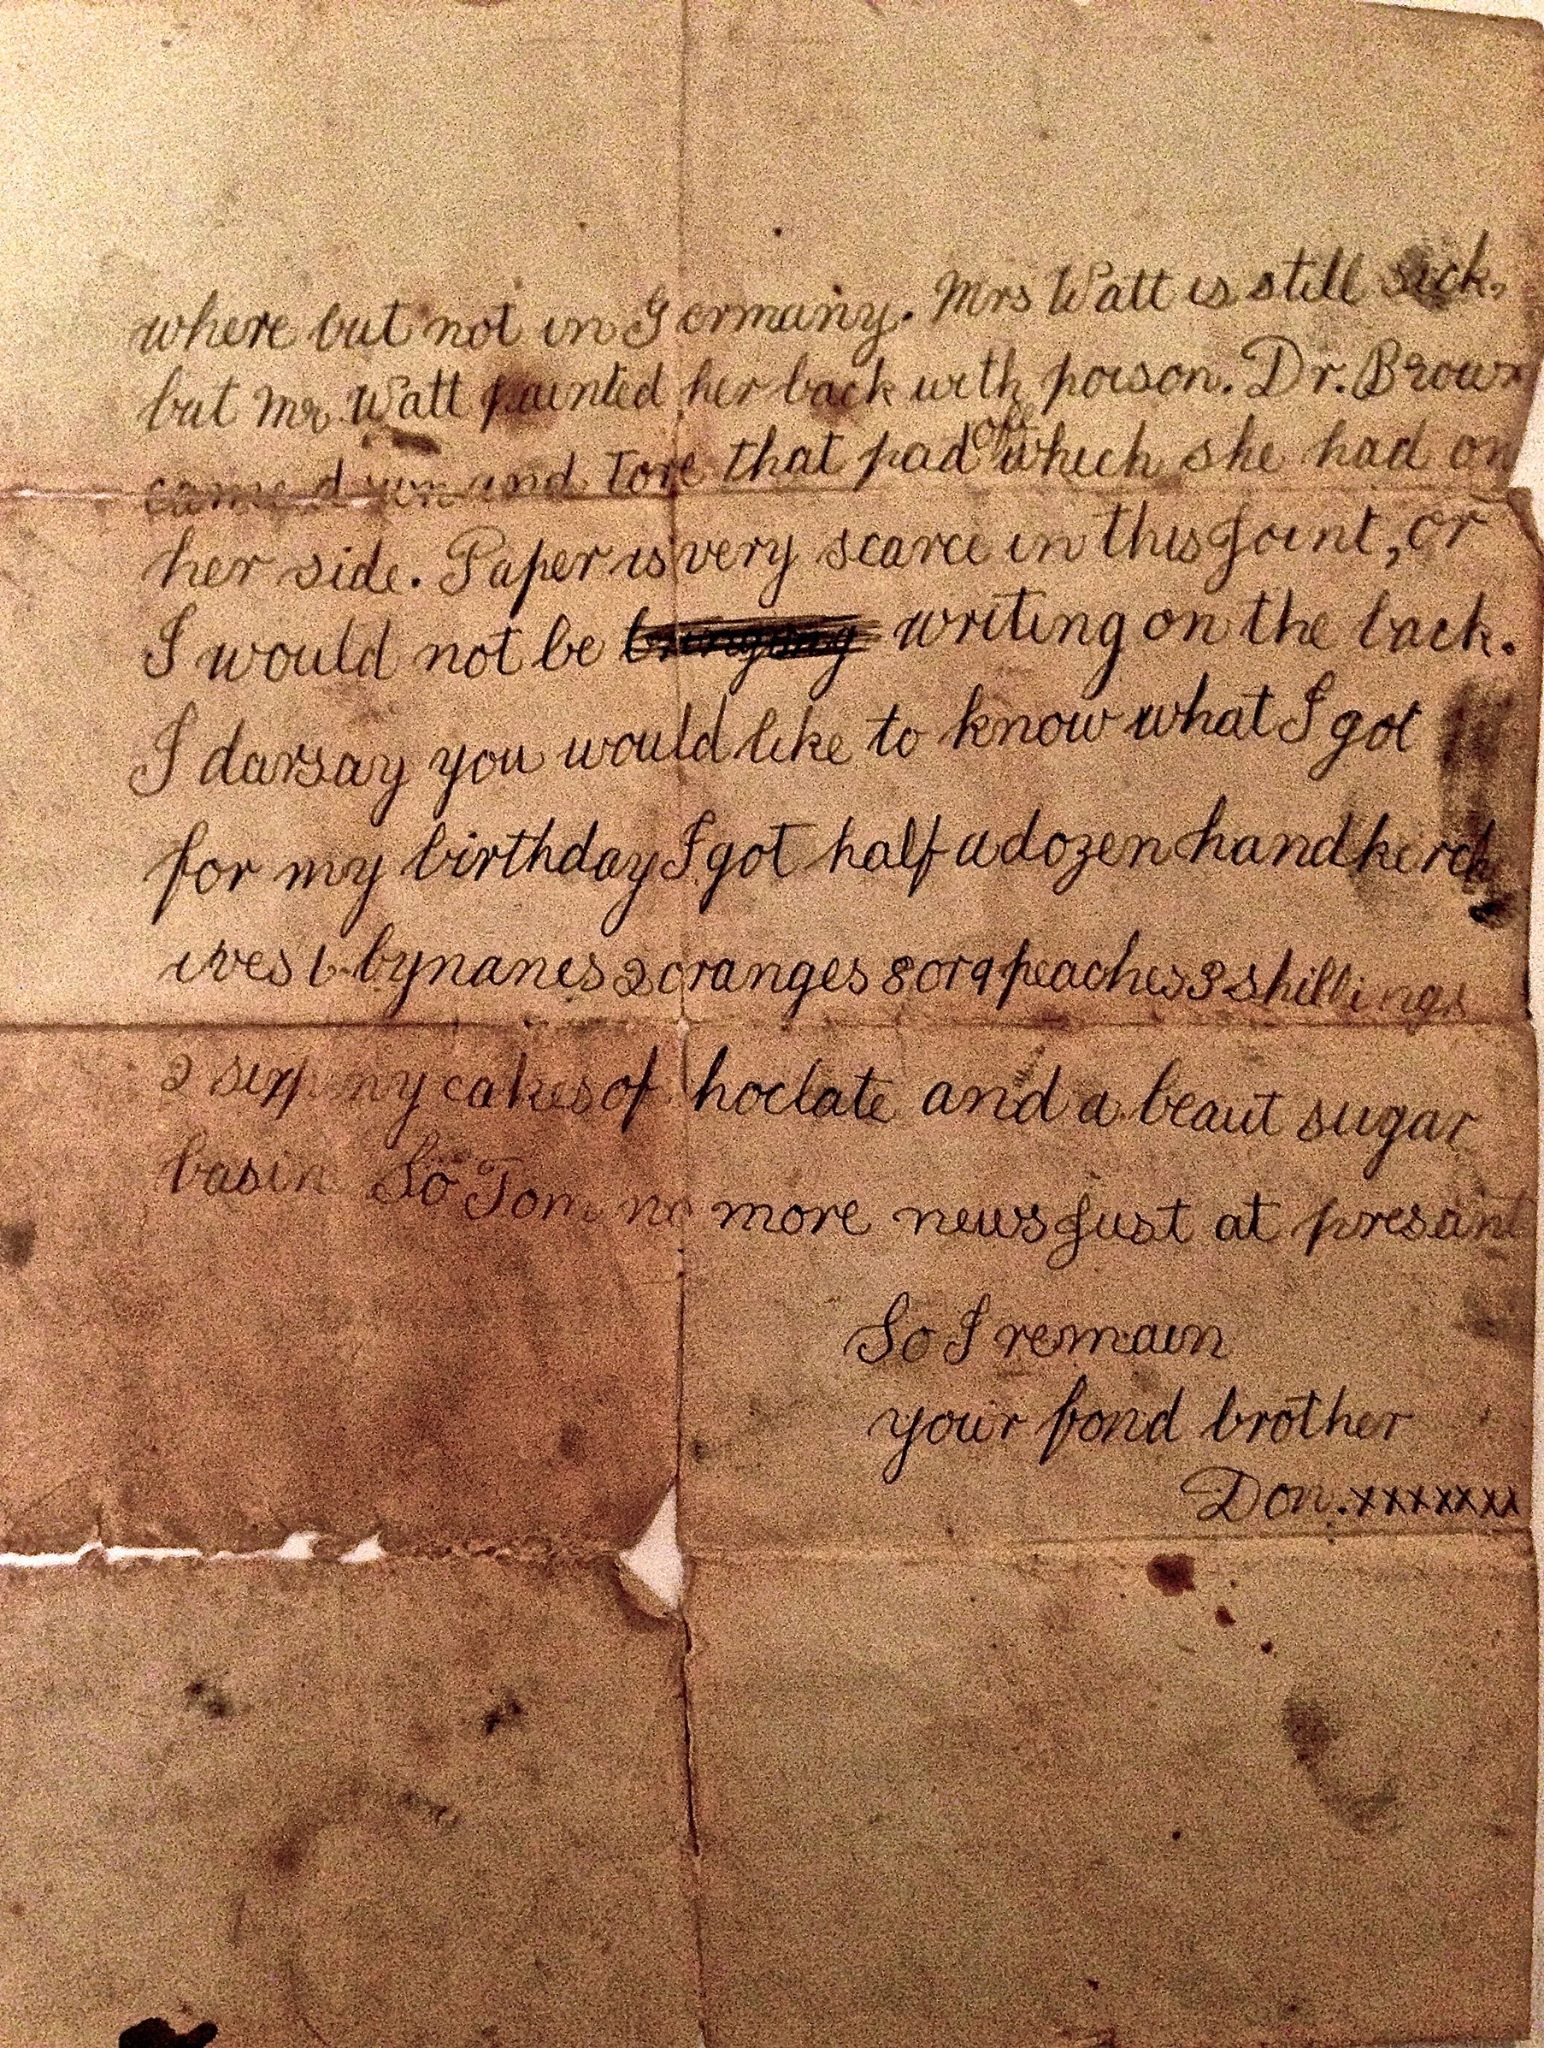 where but not in Germany. Mrs Watt is still sick.
but Mr Watt painted her back with poison. Dr. Brown
came down and Tore that pad off which she had on
her side. Paper is very scarce in this joint, or
I would not be writing on the back.
I darsay you would like to know what I got
for my birthday I got half a dozen handkerch
ives 6 bynanes 2 oranges 8 or 9 peaches 3 shillings
2 sixpenny cakes of hoclate and a beaut sugar
basin So Tom no more news just at presant
So I remain
your fond brother
Don. xxxxxxx